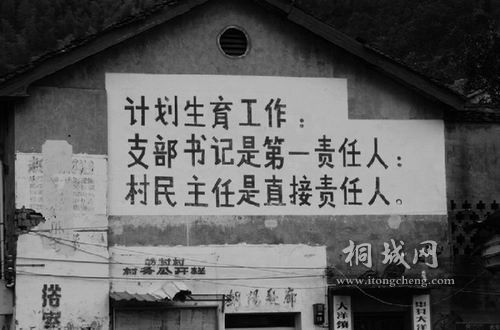 计划生育工作：
支部书记是第一责任人：
村民主任是直接责任人。
桐城网
www.itongcheng.com
村务公开栏
朝阳发廊
浴室